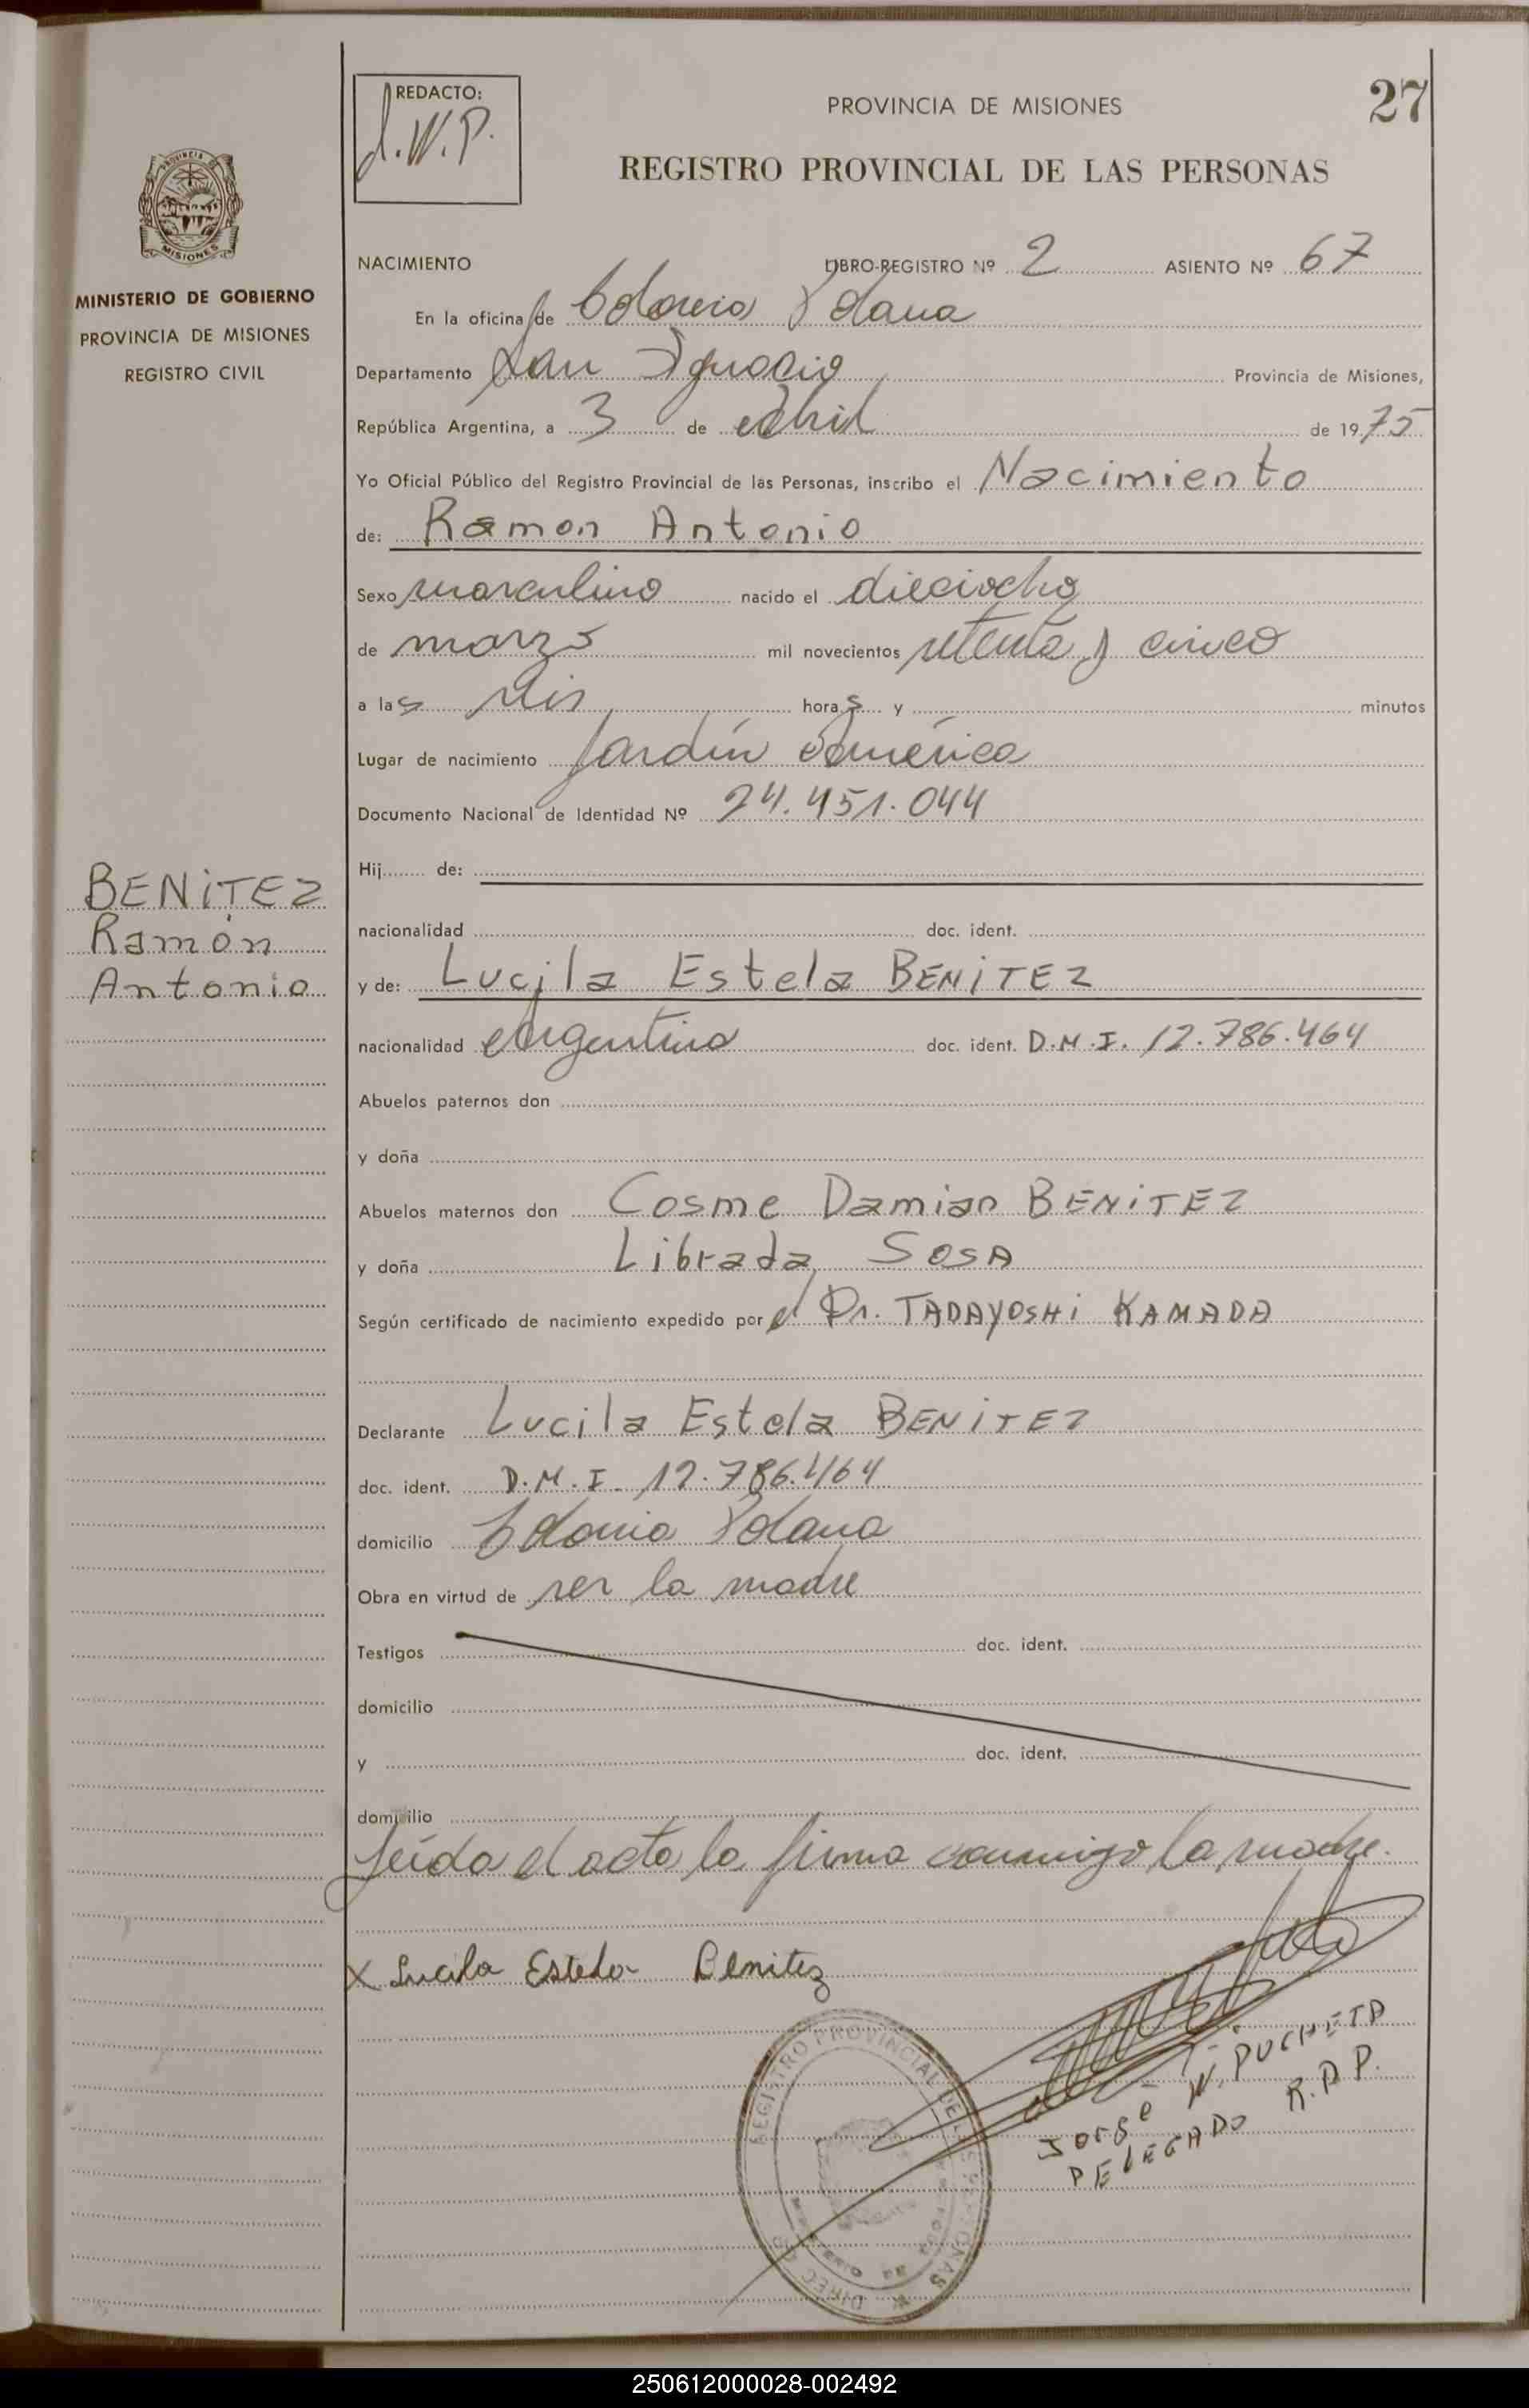 REDACTO:
J.W.P.
PROVINCIA DE MISIONES
27
REGISTRO PROVINCIAL DE LAS PERSONAS
PROVINCIA DE
MISIONES
MINISTERIO DE GOBIERNO
PROVINCIA DE MISIONES
REGISTRO CIVIL
NACIMIENTO LIBRO-REGISTRO Nº 2 ASIENTO Nº 67
En la oficina de Colonia Polana
Departamento San Ignacio Provincia de Misiones,
República Argentina, a 3 de Abril de 1975
Yo Oficial Público del Registro Provincial de las Personas, inscribo el Nacimiento
de: Ramon Antonio
Sexo masculino nacido el dieciocho
de marzo mil novecientos setenta y cinco
a las seis horas y minutos
Lugar de nacimiento Jardín América
Documento Nacional de Identidad Nº 24.451.044
Hij de:
BENITEZ
Ramón
Antonio
nacionalidad doc. ident.
y de: Lucila Estela BENITEZ
nacionalidad Argentina doc. ident. D.N.I. 12.786.464
Abuelos paternos don
y doña
Abuelos maternos don Cosme Damian BENITEZ
y doña Librada SOSA
Según certificado de nacimiento expedido por el Dr. TADAYOSHI KAMADA
Declarante Lucila Estela BENITEZ
doc. ident. D.N.I. 12.786.464
domicilio Colonia Polana
Obra en virtud de ser la madre
Testigos doc. ident.
domicilio
y doc. ident.
domicilio
Leída el acta la firma conmigo la madre.
X Lucila Estela Benitez
REGISTRO PROVINCIAL DE LAS PERSONAS
MINISTERIO DE
Jorge W. PUCHETA
DELEGADO R.P.P.
250612000028-002492